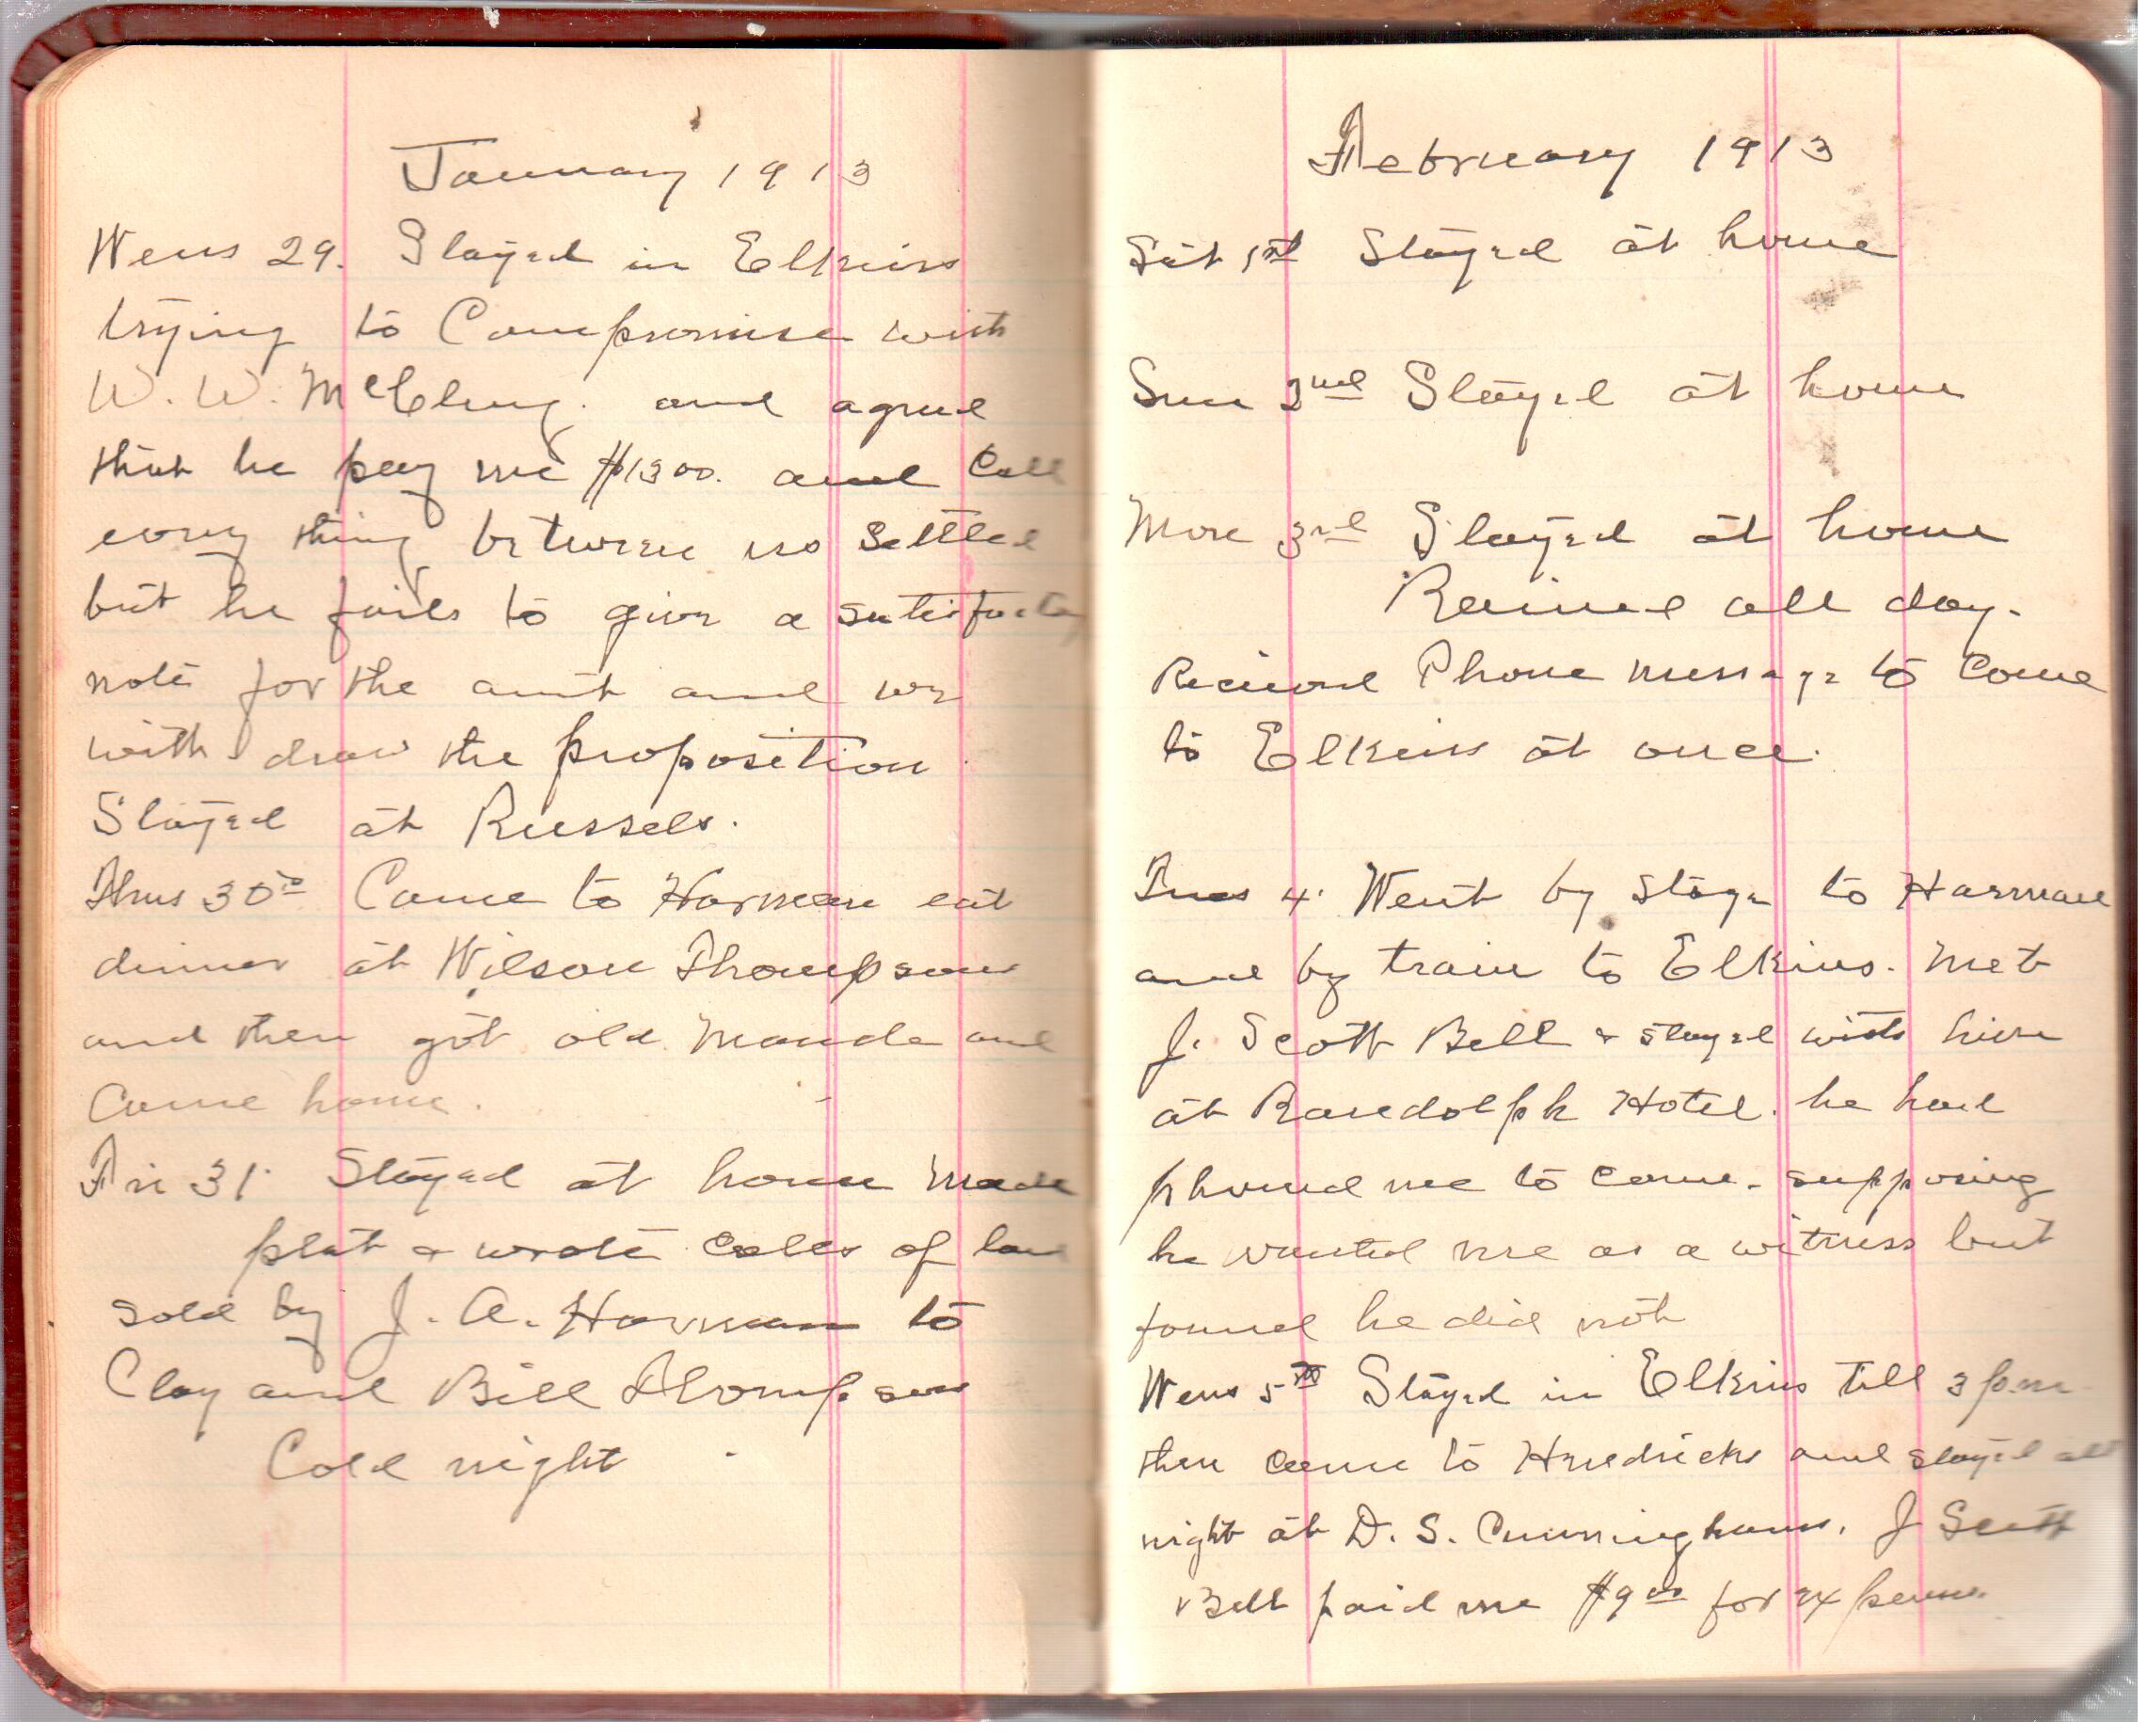 January 1913
Wens 29. Stayed in Elkins
trying to Compromise with
W. W. McClung. and agreed
that he pay me $1300. and Call
every thing between us Settled
but he fails to give a satisfactory
note for the amt and we
with draw the proposition
Stayed at Russels.
Thus 30th Came to Harman eat
dinner at Wilson Thompsons
and then got old Maude and
Came home.
Fri 31. Stayed at home made
plat & wrote calls of
sold by J. A. Harman to
Clay and Bill Thompson
Cold night
February 1913
Sat 1st Stayed at home
Sun 2nd Stayed at home
Mon 3rd Stayed at home
Rained all day.
Recieved Phone message to Come
to Elkins at once.
Tues 4. Went by Stage to Harman
and by train to Elkins. Met
J. Scott Bell & stayed with him
at Randolph Hotel. he had
phoned me to come. supposing
he wanted me as a witness but
found he did not
Wens 5th Stayed in Elkins till 3 p.m.
then came to Hendricks and stayed all
night at D. S. Cunninghams. J Scott
Bell paid me $9.00 for